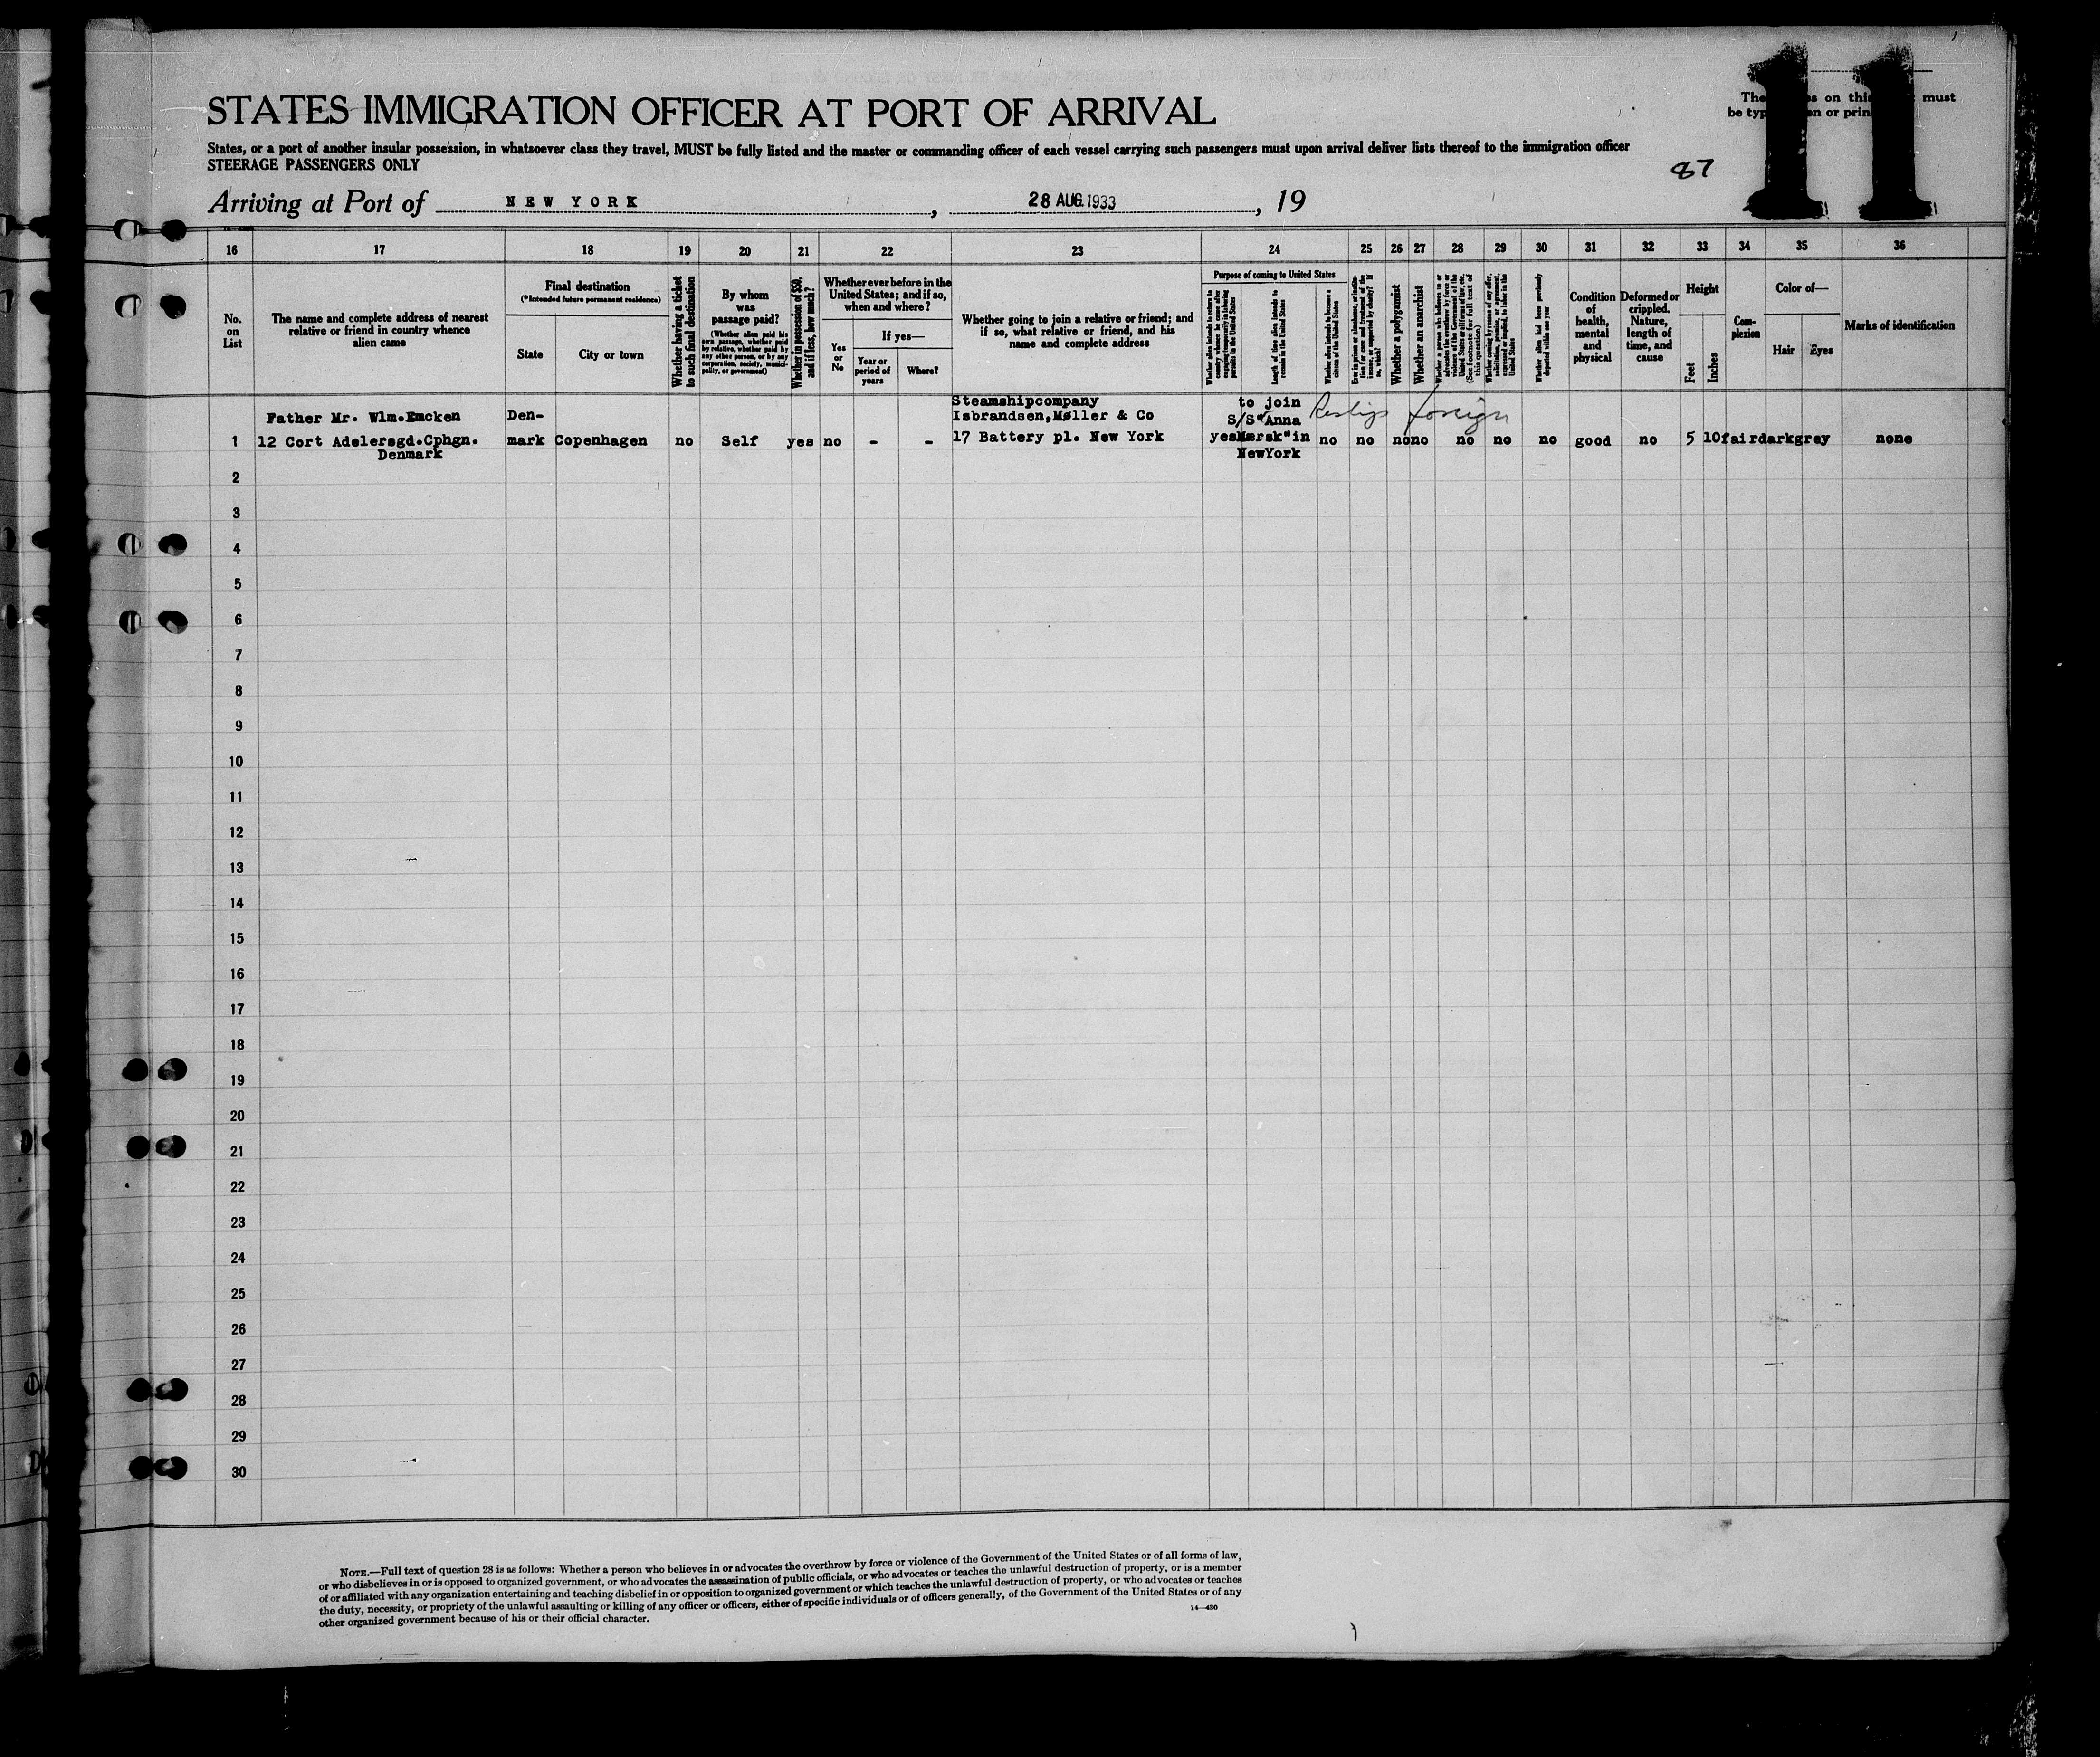 11
STATES IMMIGRATION OFFICER AT PORT OF ARRIVAL
The on this must
be typ or prin
States, or a port of another insular possession, in whatsoever class they travel, MUST be fully listed and the master or commanding officer of each vessel carrying such passengers must upon arrival deliver lists thereof to the immigration officer
STEERAGE PASSENGERS ONLY
87
Arriving at Port of NEW YORK, 28 AUG. 1933, 19
16 17 18 19 20 21 22 23 24 25 26 27 28 29 30 31 32 33 34 35 36
No. on List
The name and complete address of nearest relative or friend in country whence alien came
Final destination
(*Intended future permanent residence)
State
City or town
Whether having a ticket to such final destination
By whom was passage paid?
(Whether alien paid his own passage, whether paid by relative, whether paid by any other person, or by any corporation, society, municipality, or government)
Whether in possession of $50, and if less, how much?
Whether ever before in the United States; and if so, when and where?
Yes or No
If yes—
Year or period of years
Where?
Whether going to join a relative or friend; and if so, what relative or friend, and his name and complete address
Purpose of coming to United States
Whether alien intends to return to country whence he came after engaging temporarily in laboring pursuits in the United States
Length of time alien intends to remain in the United States
Whether alien intends to become a citizen of the United States
Ever in prison or almshouse, or institution for care and treatment of the insane, or supported by charity? If so, which?
Whether a polygamist
Whether an anarchist
Whether a person who believes in or advocates the overthrow by force or violence of the Government of the United States or all forms of law, etc. (See footnote for full text of this question)
Whether coming by reason of any offer, solicitation, promise, or agreement, expressed or implied, to labor in the United States
Whether alien had been previously deported within one year
Condition of health, mental and physical
Deformed or crippled. Nature, length of time, and cause
Height
Feet
Inches
Complexion
Color of—
Hair
Eyes
Marks of identification
Father Mr. Wlm.Emcken
12 Cort Adelersgd.Cphgn.
Denmark
Den-
mark Copenhagen no Self yes no - -
Steamshipcompany
Isbrandsen,Møller & Co
17 Battery pl. New York
to join
S/S"Anna
yes Mærsk"in
NewYork
foreign
no no no no no no no good no 5 10 fair dark grey none
1
2
3
4
5
6
7
8
9
10
11
12
13
14
15
16
17
18
19
20
21
22
23
24
25
26
27
28
29
30
NOTE.—Full text of question 28 is as follows: Whether a person who believes in or advocates the overthrow by force or violence of the Government of the United States or of all forms of law,
or who disbelieves in or is opposed to organized government, or who advocates the assassination of public officials, or who advocates or teaches the unlawful destruction of property, or is a member
of or affiliated with any organization entertaining and teaching disbelief in or opposition to organized government or which teaches the unlawful destruction of property, or who advocates or teaches
the duty, necessity, or propriety of the unlawful assaulting or killing of any officer or officers, either of specific individuals or of officers generally, of the Government of the United States or of any
other organized government because of his or their official character.
14—430